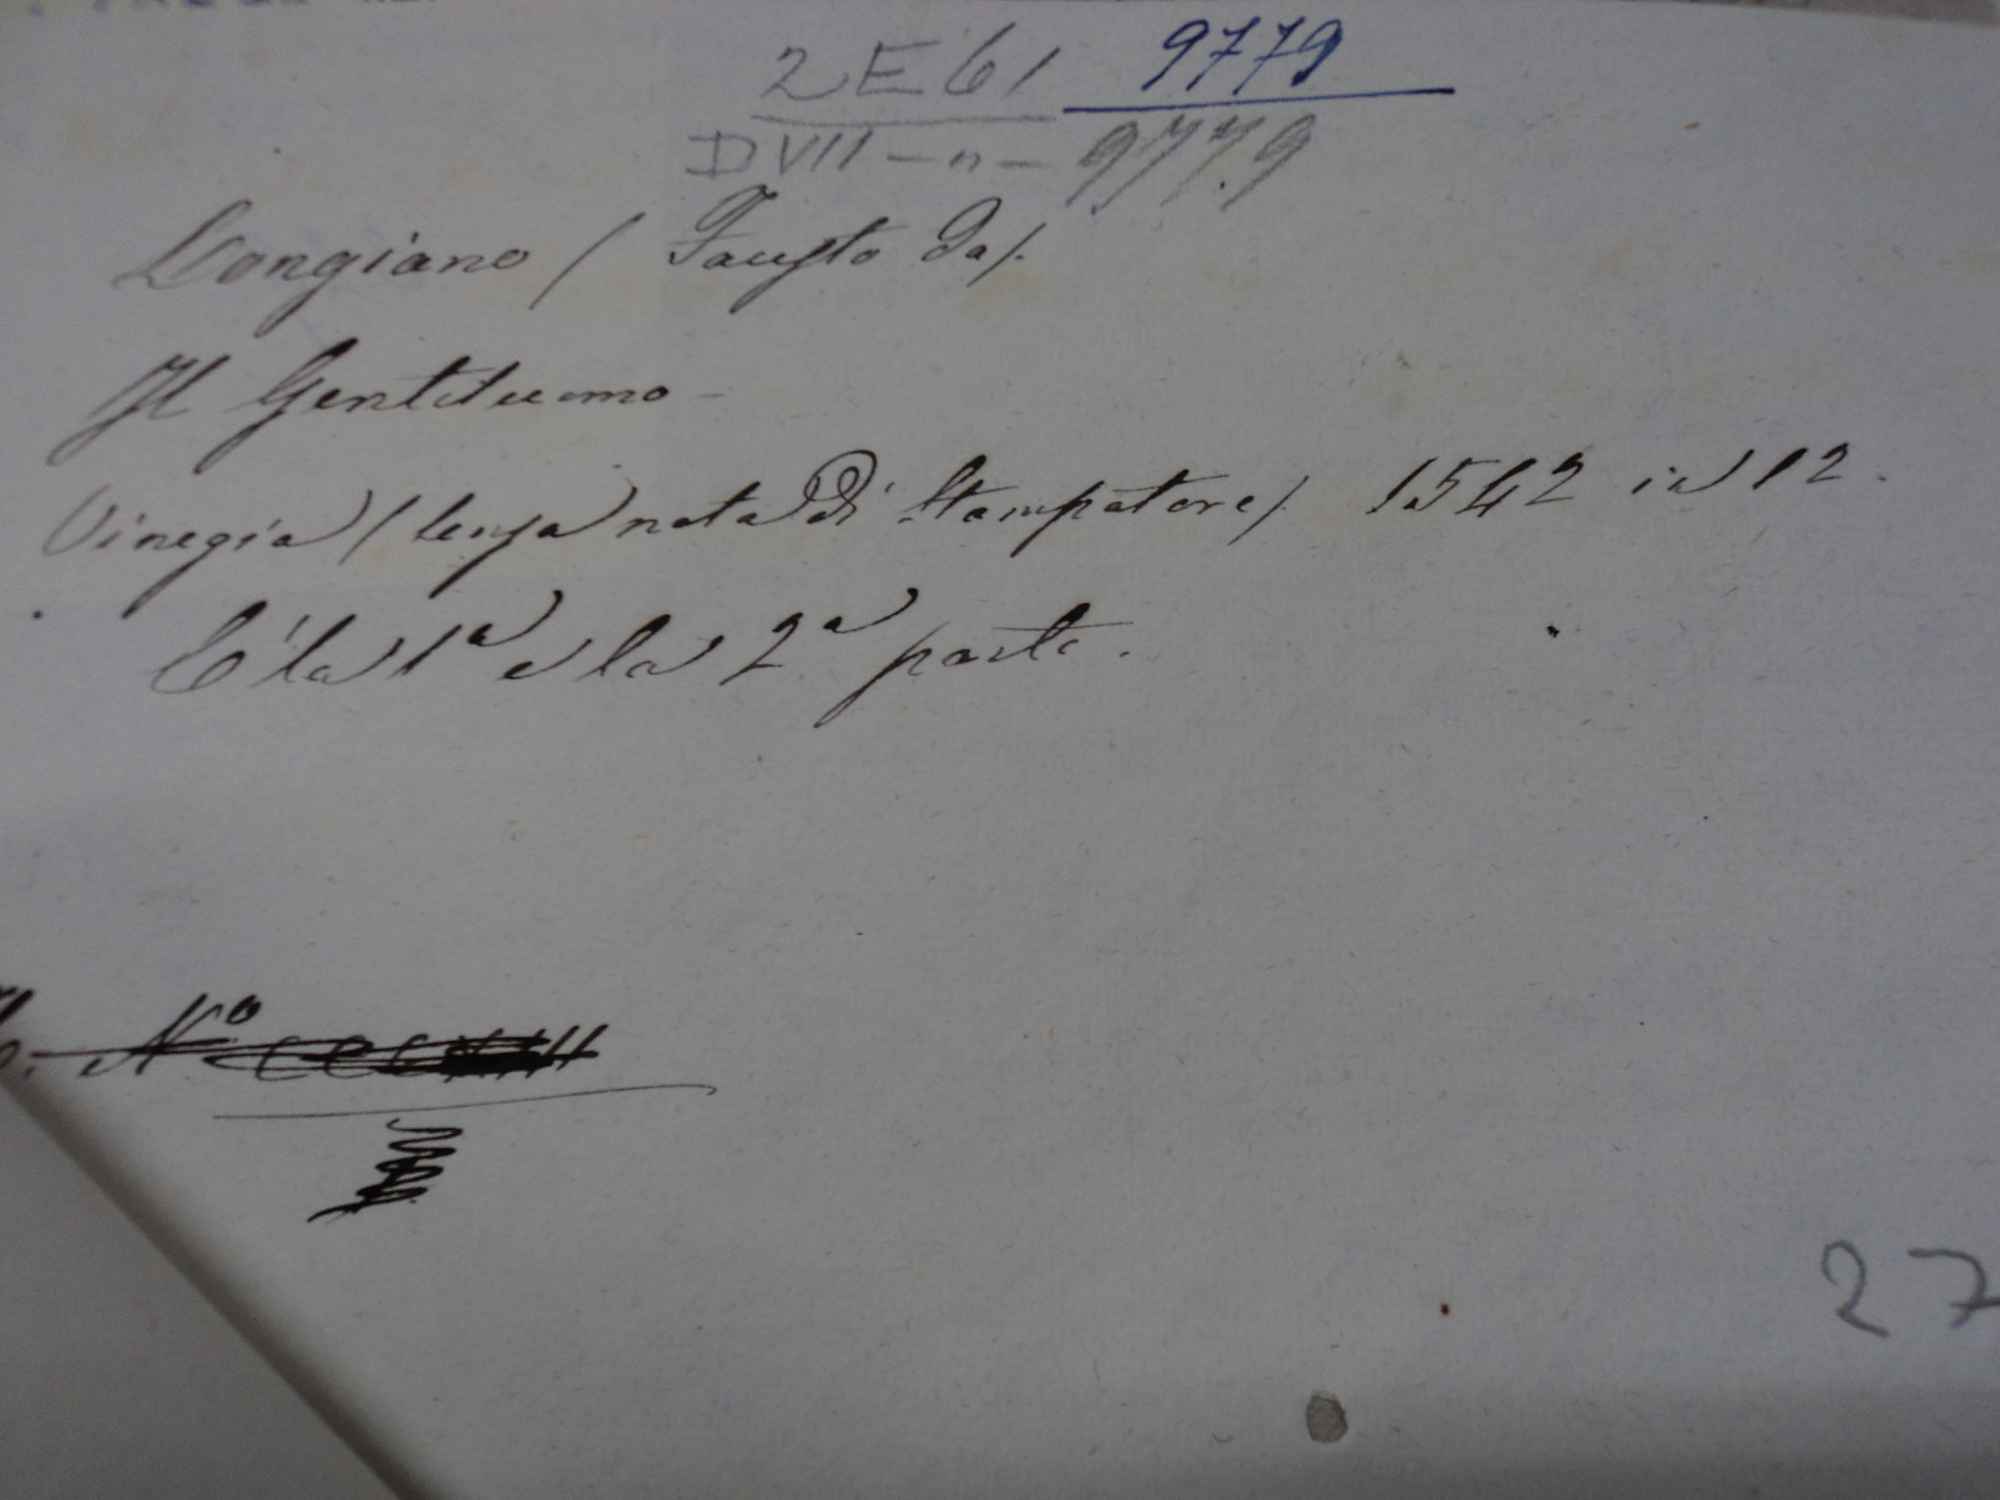 2E61 9779
DVII - n - 9779
Longiano (Fausto da).
Il Gentiluomo -
Vinegia (senza nota di Stampatore). 1542 in 12.
C'è la 1ª e la 2ª parte.
Nº
27